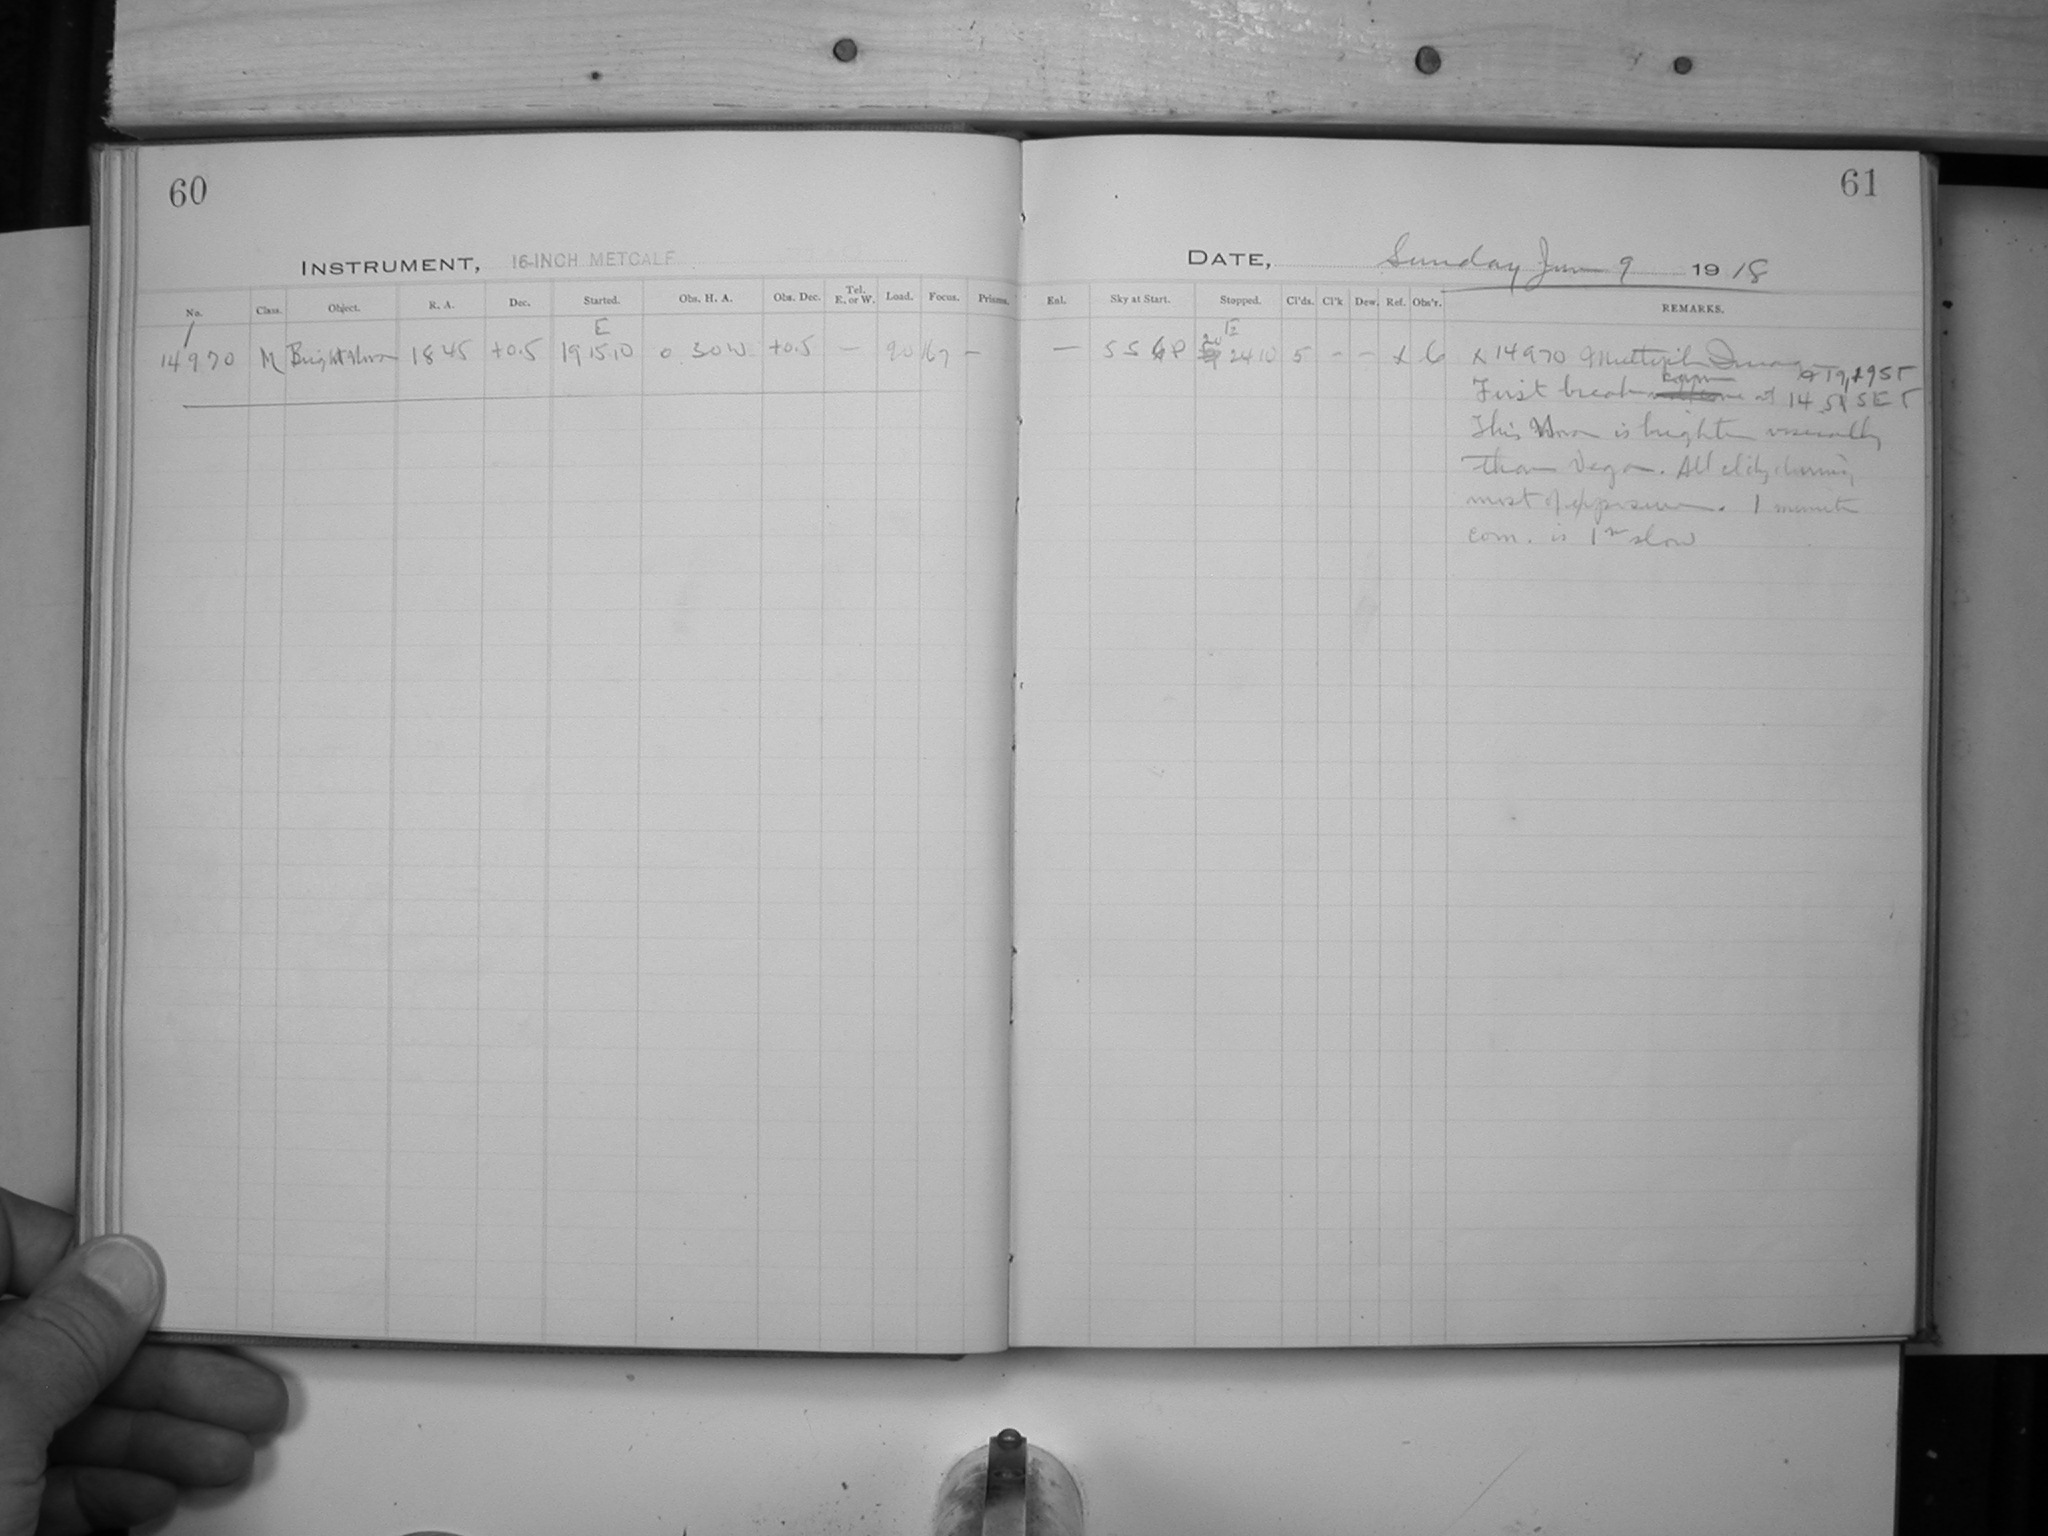 60
INSTRUMENT, 16-INCH METCALF
No. Class. Object. R. A. Dec. Started. Obs. H. A. Obs. Dec. Tel. E. or W. Load. Focus. Prisms.
E
14970 M Bright Nova 18 45 +0.5 19 15 10 0 30 W +0.5 — 90 167 —
61
DATE, Sunday June 9 1918
Enl. Sky at Start. Stopped. Cl'ds. Cl'k Dew. Ref. Obs'r. REMARKS.
E
— 20 24 10 5 - - x 6 x 14970 Multiple Image
First break at 14
This Nova is brighter visually
than Vega. All cldy during
most of exposure. 1 minute
com. is 1m slow